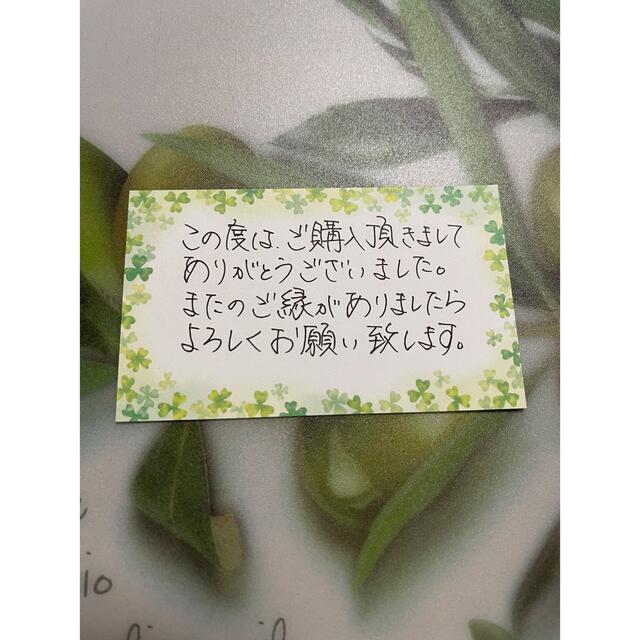 この度は、ご購入頂きまして
ありがとうございました。
またのご縁がありましたら
よろしくお願い致します。
io